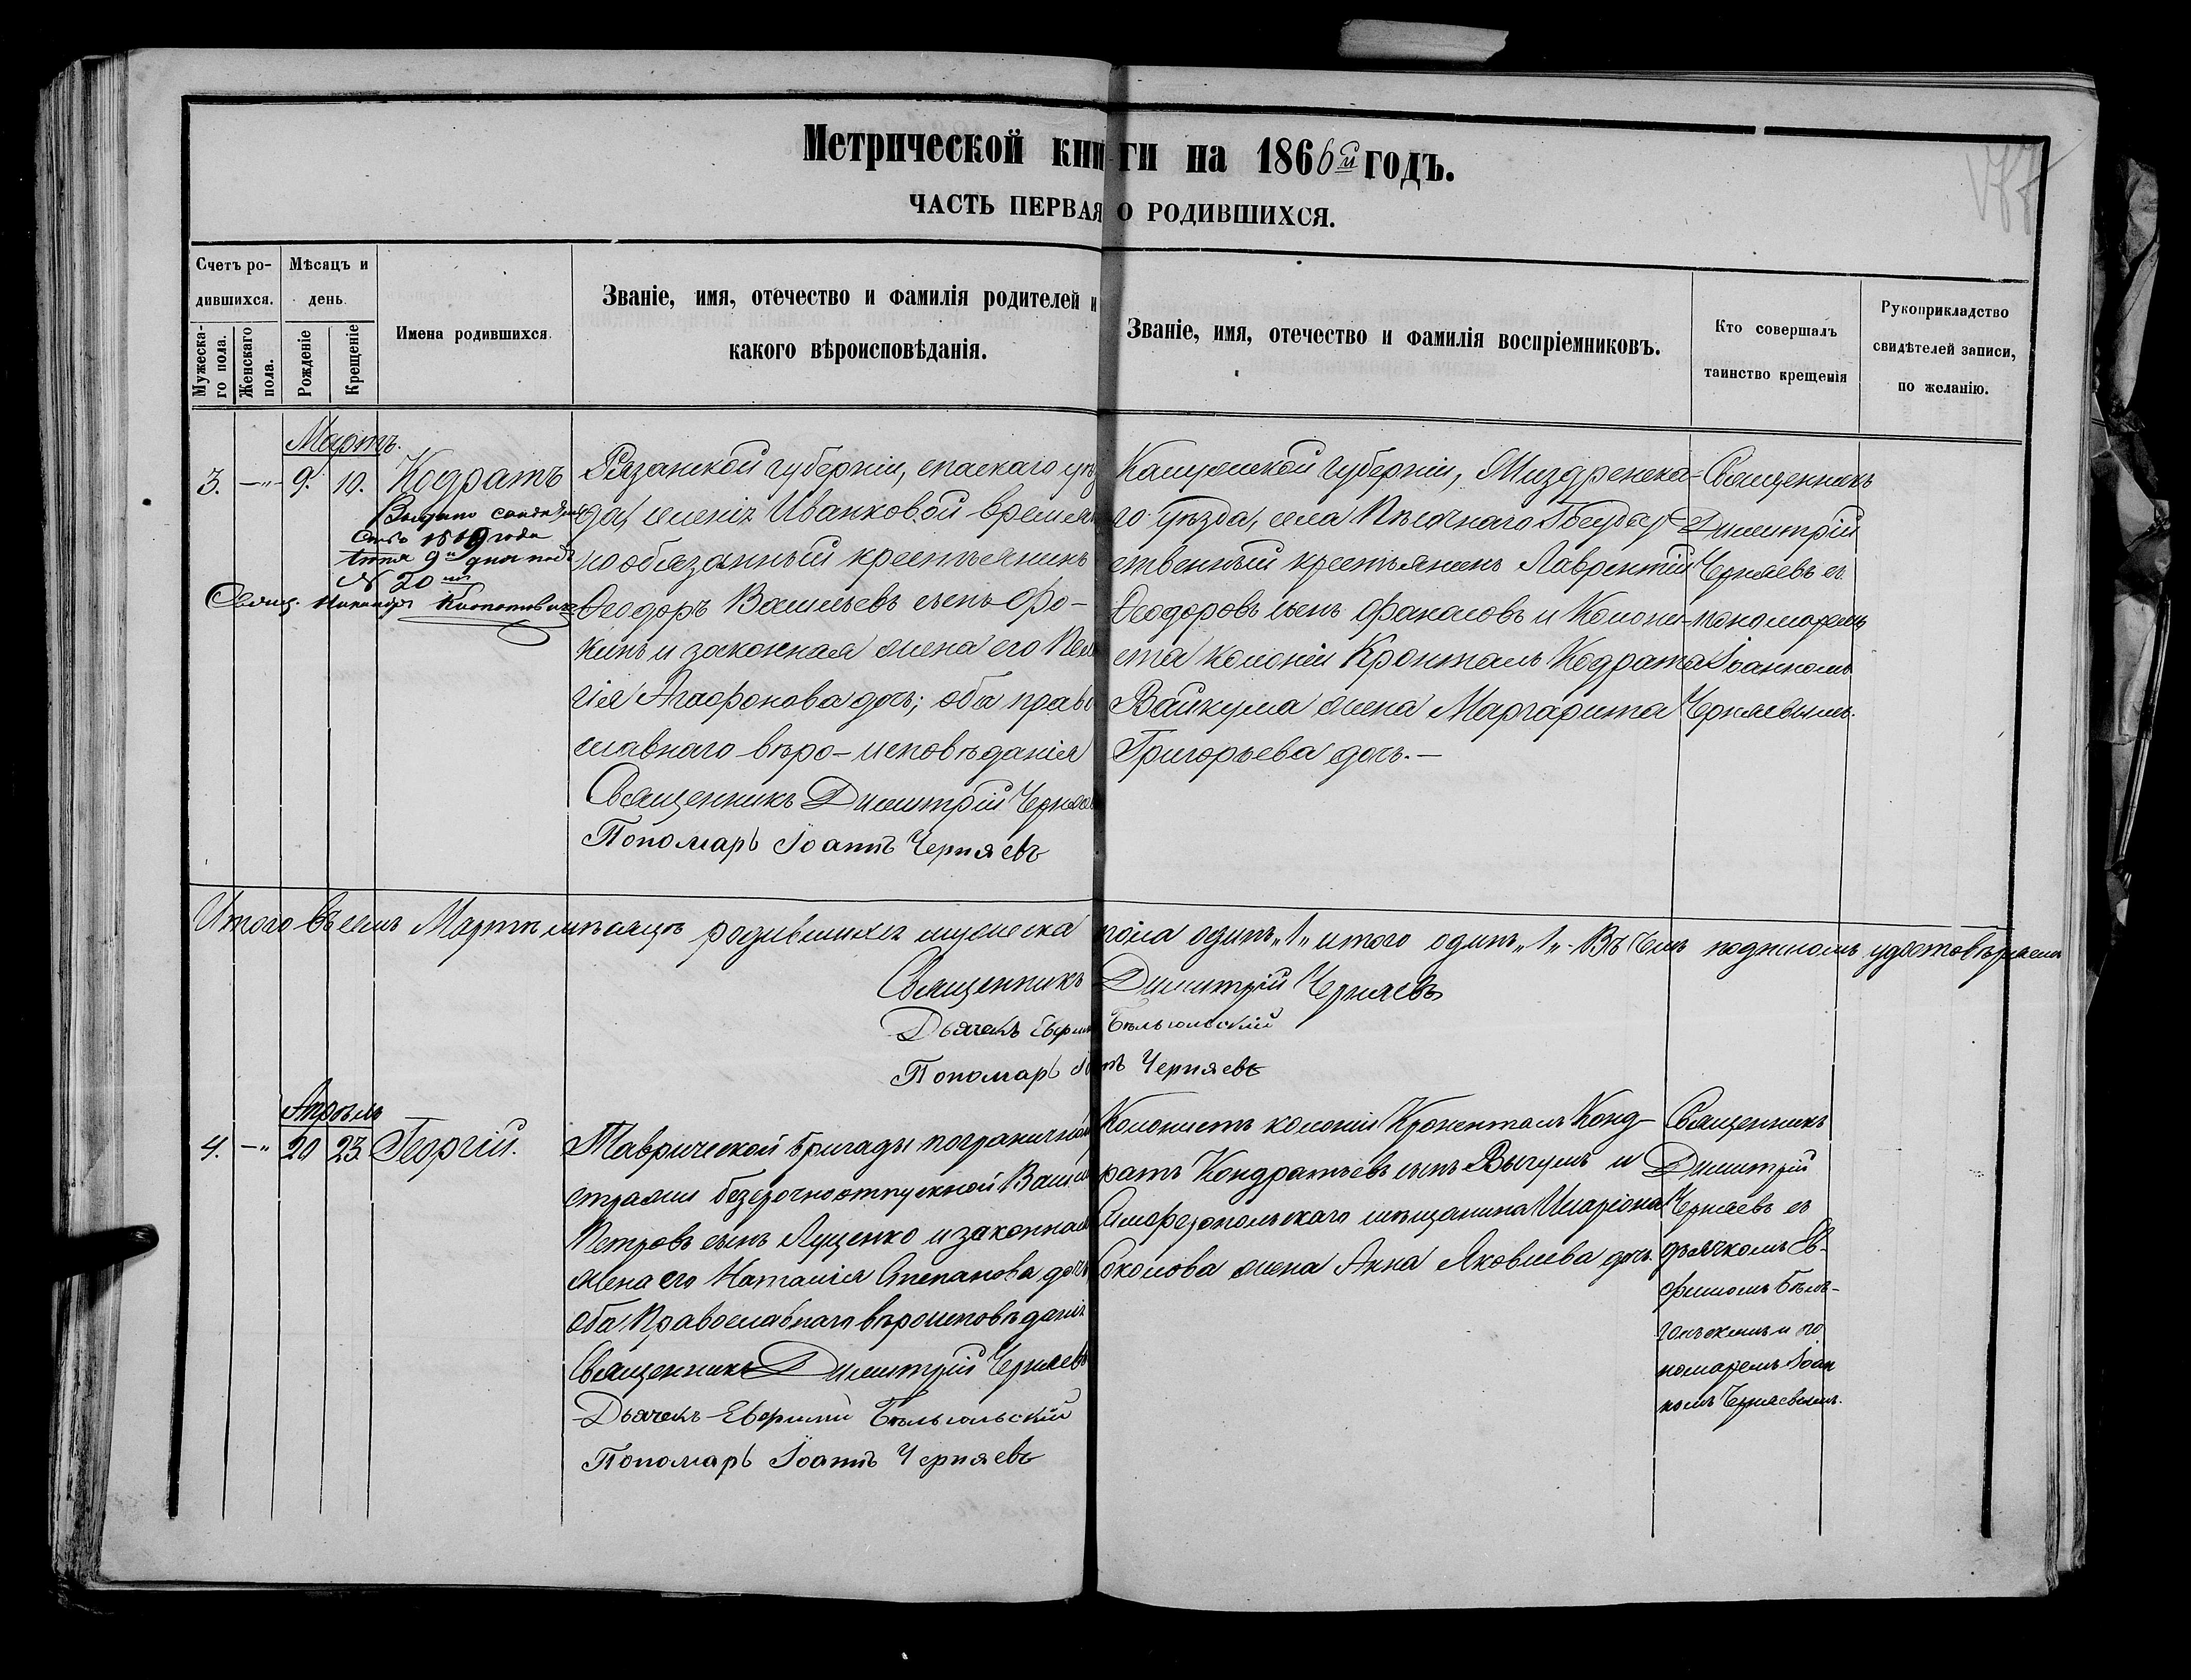 Метрической книги на 1866й годъ.
ЧАСТЬ ПЕРВАЯ О РОДИВШИХСЯ.
Счетъ родившихся.
Мужескаго пола.
Женскаго пола.
Мѣсяцъ и день.
Рожденіе
Крещеніе
Имена родившихся.
Званіе, имя, отечество и фамилія родителей и
какого вѣроисповѣданія.
Званіе, имя, отечество и фамилія воспріемниковъ.
Кто совершалъ
таинство крещенія
Рукоприкладство
свидѣтелей записи,
по желанію.
Мартъ.
3. —"— 9. 10. Кодратъ
Рязанской губерніи, спаскаго уѣз
да, селенія Иванковой времен
но обязанный крестьянинъ
Ѳеодоръ Васильевъ сынъ Фо-
кинъ и законная жена его Пела
гія Агафонова дочь; оба право
славнаго вѣро-исповѣданія
Священникъ Димитрій Черняевъ
Пономарь Іоаннъ Черняевъ
года
9го дня подъ
№ 20
Свящ.
Калужской губерніи, Миздренска-
го уѣзда, села Пѣсочнаго Государ-
ственный крестьянинъ Лаврентій
Ѳеодоровъ сынъ Фанасовъ и Колони-
ста колоніи Кронталь Кодрата
Вайкума жена Маргарита
Григорьева дочь.—
Священникъ
Димитрій
Черняевъ съ
пономаремъ
Іоанномъ
Черняевымъ.
Итого въ семъ Мартѣ мѣсяцѣ родившихся мужеска пола одинъ „1„ итого одинъ „1„. Въ чемъ подписомъ удостовѣряемъ
Священникъ Димитрій Черняевъ
Дьячекъ Евфимій Бѣльгольскій
Пономарь Іоаннъ Черняевъ
Апрѣль
4. —" 20 23 Георгій.
Таврической бригады пограничной
стражи безсрочноотпускной Василій
Петровъ сынъ Лущенко и законная
жена его Наталія Степанова дочь
оба Православнаго вѣроисповѣданія
Священникъ Димитрій Черняевъ
Дьячекъ Евфимій Бѣльгольскій
Пономарь Іоаннъ Черняевъ
Колонистъ колоніи Кроненталь Конд-
ратъ Кондратьевъ сынъ Выгумъ и
Симферопольскаго мѣщанина Иларіона
Соколова жена Анна Яковлева дочь.
Священникъ
Димитрій
Черняевъ съ
дьячкомъ Ев-
фимомъ Бѣль-
гольскимъ и по
номаремъ Іоан
номъ Черняевымъ.